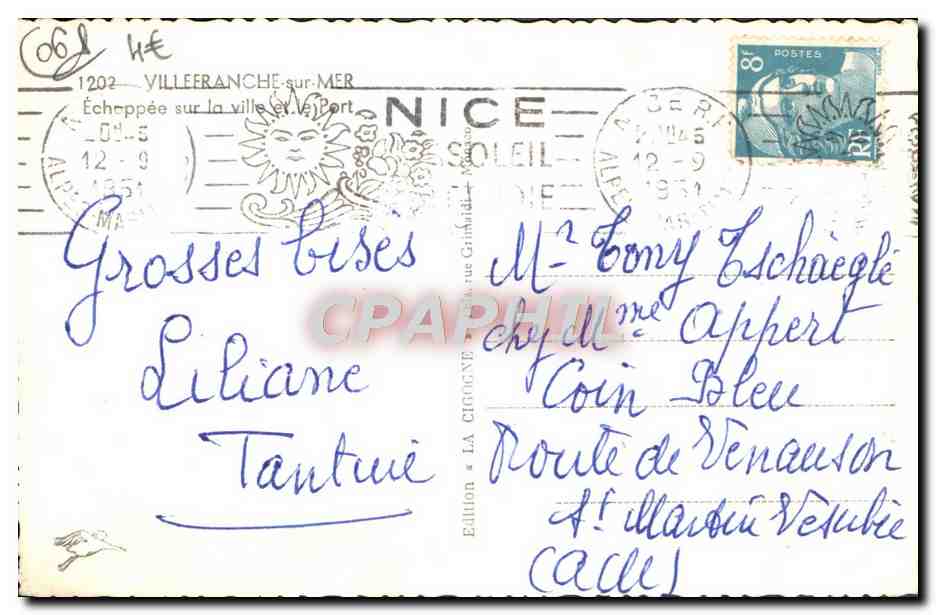 068 4€
1202 VILLEFRANCHE-sur-MER
Échappée sur la ville et le Port
12 - 9
1951
NICE
SOLEIL
12 - 9
1951
8F
POSTES
RF
Grosses bises
Liliane
Tantine
CPAPHIL
Edition « LA CIGOGNE » rue Grimaldi Monaco
Mr Tony Tschaeglé
chez Mme Appert
Coin Bleu
Route de Venanson
St Martin Vésubie
(A M)